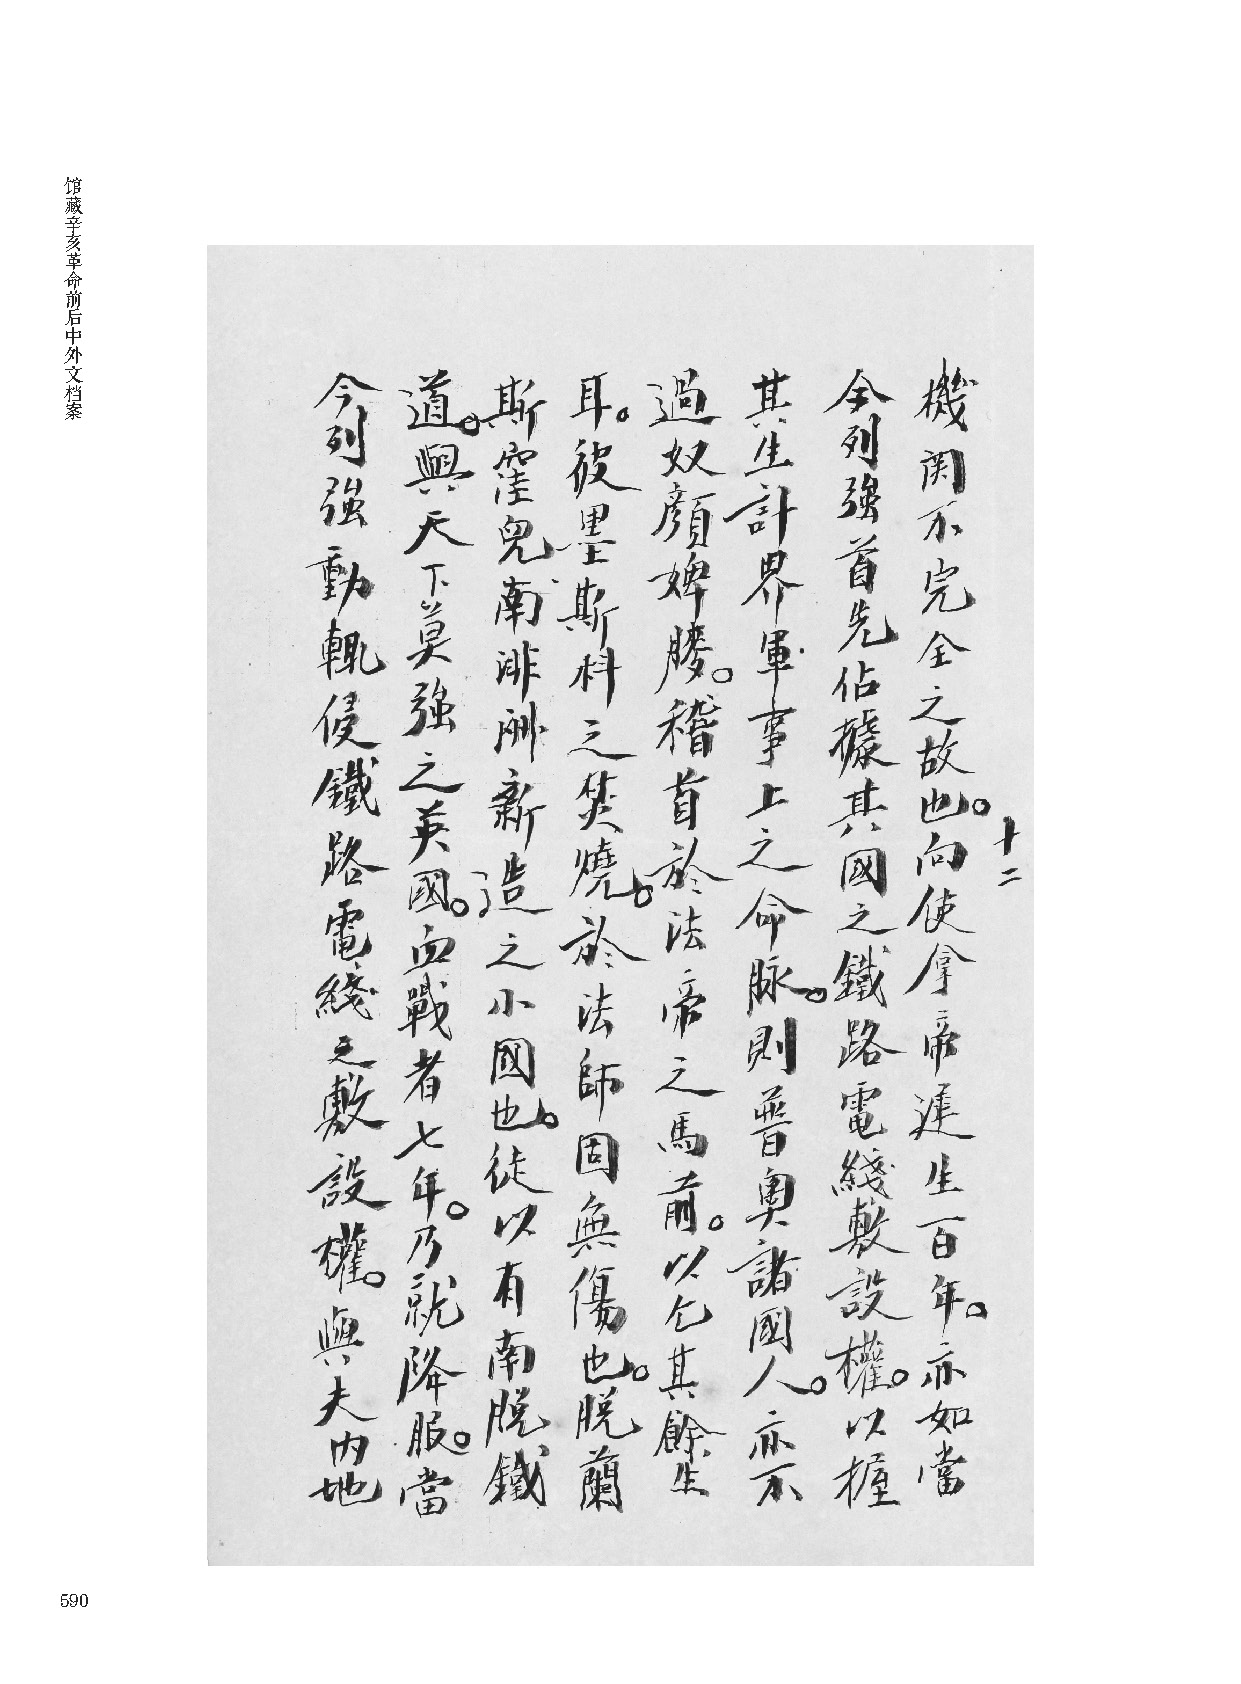 馆藏辛亥革命前后中外文档案
十二
機関不完全之故也。向使拿帝遅生百年。亦如當
今列強首先佔據其國之鐵路電綫敷設權。以握
其生計界軍事上之命脉。則普奥諸國人。亦不
過奴顔婢膝。稽首於法帝之馬前。以乞其餘生
耳。彼墨斯科之焚燒。於法師固無傷也。脱蘭
斯窪兒南非洲新造之小國也。徒以有南脱鐵
道。與天下莫強之英國。血戰者七年。乃就降服。當
今列強動輒侵鐵路電綫之敷設權。與夫内地
590